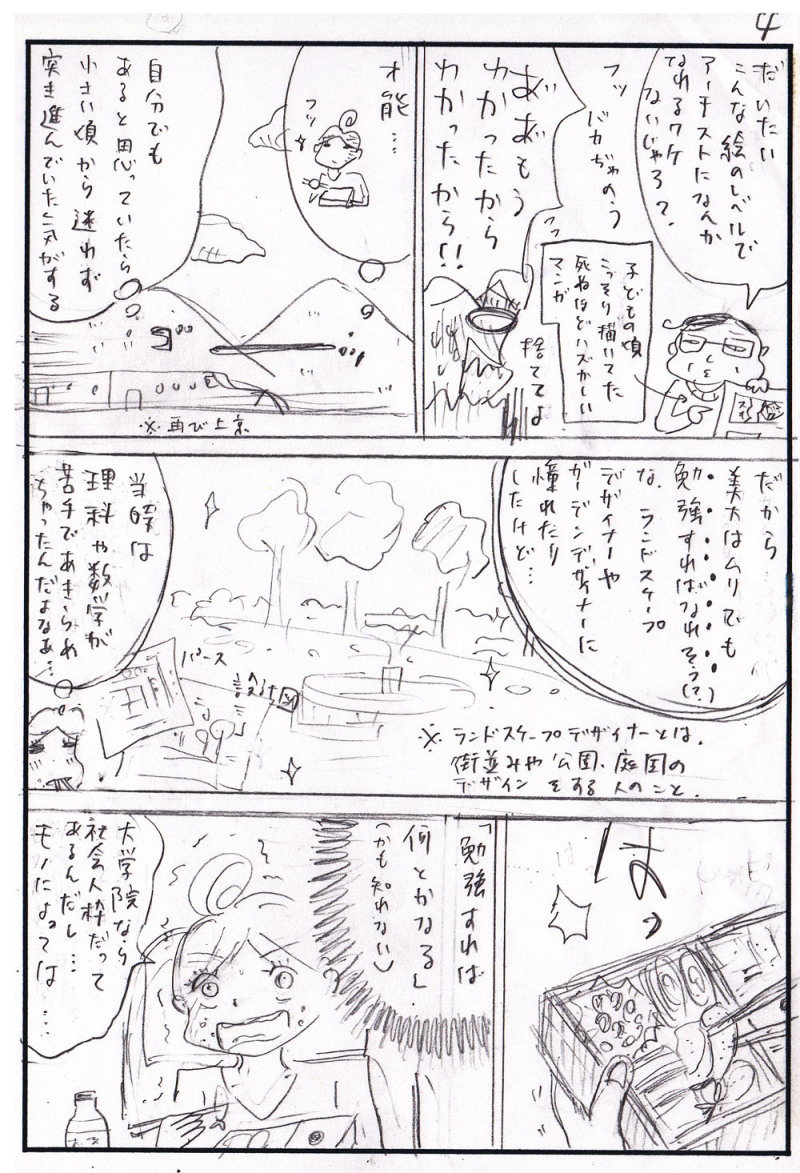 4
だいたい
こんな絵のレベルで
アーチストになんか
なれるワケ
ないじゃろ?
フッ
バカぢゃのう
フッ
あ゛あ゛もう
わかったから
わかったから!!
捨ててよ
子どもの頃
こっそり描いてた
死ぬほどハズかしい
マンガ
才能…
フッ
自分でも
あると思っていたら
小さい頃から迷わず
突き進んでいた気がする
※再び上京
だから…
美大はムリでも
勉強すればなれそう(?)
な、ランドスケープ
デザイナーや
ガーデンデザイナーに
憧れたり
したけど…
パース
設計図
※ランドスケープデザイナーとは、
街並みや公園、庭園の
デザインをする人のこと。
当時は
理科や数学が
苦手であきらめ
ちゃったんだよなぁ…
はっ
「勉強すれば
何とかなる」
(かも知れない)
大学院なら
社会人枠だって
あるんだし…
モノによっては…